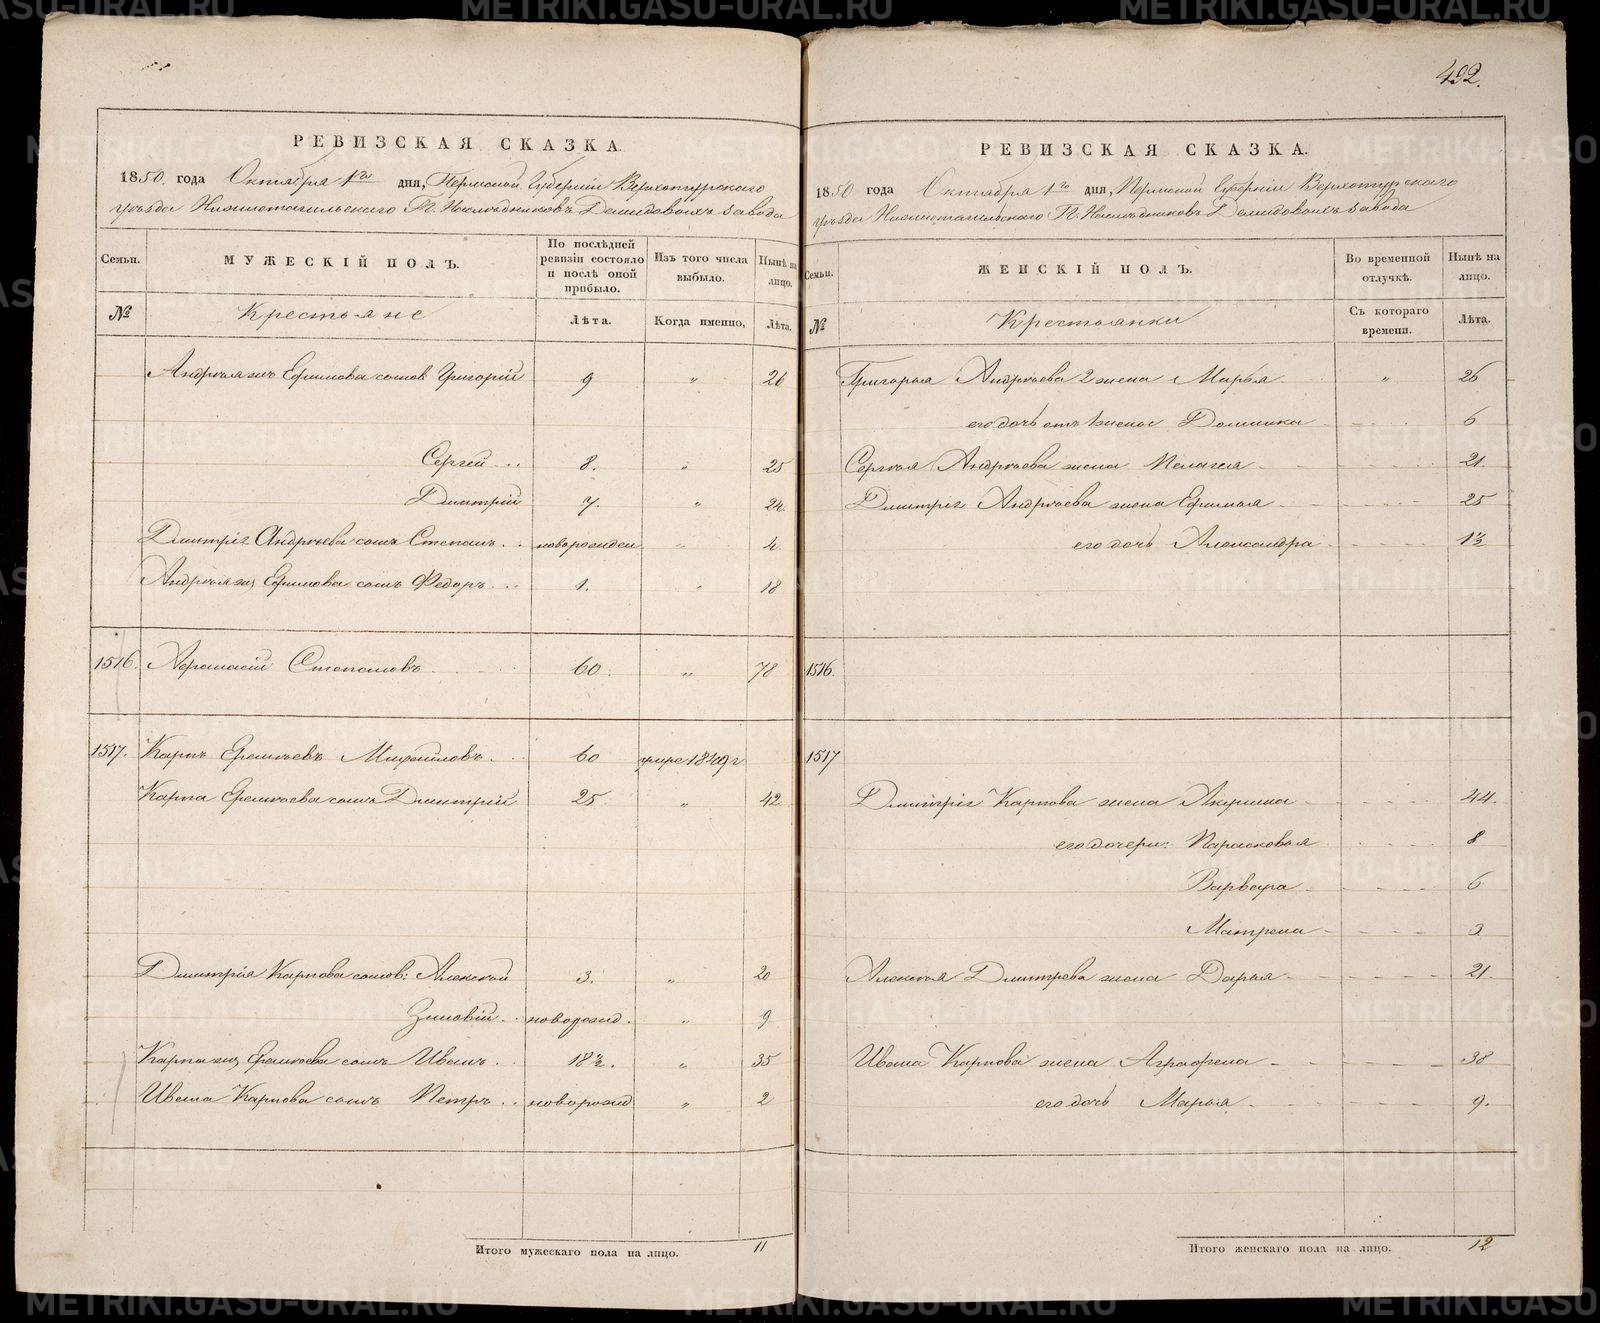 492.
РЕВИЗСКАЯ СКАЗКА.
1850 года Октября 1го дня, Пермской Губерніи Верхотурскаго
уѣзда Нижнетагильскаго Гг. Наслѣдниковъ Демидовыхъ завода
Семьи. МУЖЕСКІЙ ПОЛЪ. По послѣдней ревизіи состояло и послѣ оной прибыло. Изъ того числа выбыло. Нынѣ на лицо.
№ Крестьяне Лѣта. Когда именно, Лѣта.
Ефимова сынов Григорій 9 " 26
Сергей 8. " 25
Дмитрій 7. " 24
Дмитрія Андрѣева сынъ Степанъ новорожден " 4
Ефимова сынъ Федоръ 1. " 18
1516. Афанасій Степановъ 60. " 78
1517. Карпъ Еремѣевъ Михайловъ 60 умре
Карпа Еремѣева сынъ Дмитрій 25 " 42
Дмитрія Карпова сынов: Алексей 3. " 20
Зиновій новорожд. " 9
Карпа Еремѣева сынъ Иванъ 18½. " 35
Ивана Карпова сынъ Петръ новорожд " 2
Итого мужескаго пола на лицо. 11
РЕВИЗСКАЯ СКАЗКА.
1850 года Октября 1го дня, Пермской Губерніи Верхотурскаго
уѣзда Нижнетагильскаго Гг. Наслѣдниковъ Демидовыхъ завода
Семьи. ЖЕНСКІЙ ПОЛЪ. Во временной отлучкѣ. Нынѣ на лицо.
№ Крестьянки Съ котораго времени. Лѣта.
Григорья Андрѣева 2 жена Марья " 26
его дочь отъ 1 жены Домника 6
Сергѣя Андрѣева жена Пелагея 21.
Дмитрія Андрѣева жена Ефимья 25
его дочь Александра 1½
1516.
1517
Дмитрія Карпова жена Акулина 44.
его дочери: Парасковья 8
Варвара 6
Матрена 3
Алексѣя Дмитрева жена Дарья 21.
Ивана Карпова жена Аграфена 38
его дочь Марья 9.
Итого женскаго пола на лицо. 12
METRIKI.GASO-URAL.RU